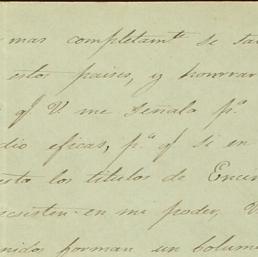 mas completamte se sa
estos paises, y honrrar
qe V. me señala pa
dio eficas, pa qe si en
esta los titulos de Encu
ecsisten en mi poder, V
nidos forman un bolume